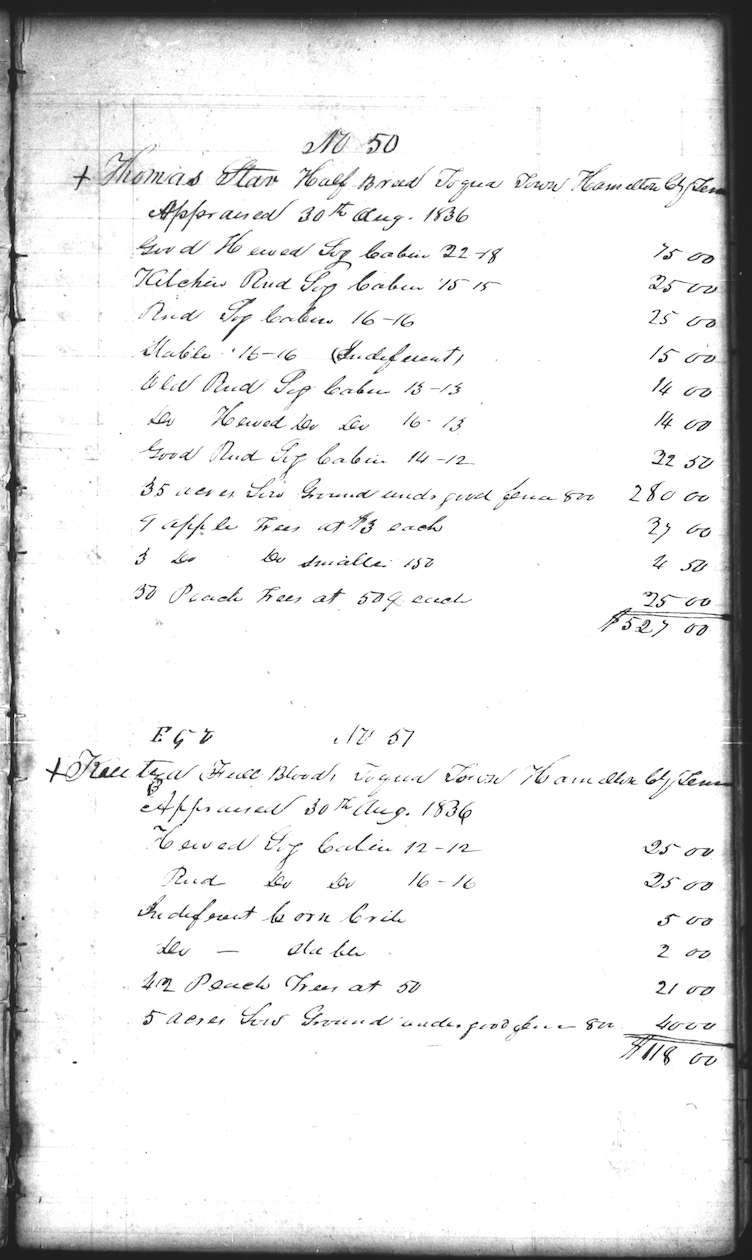 No 50
+ Thomas Star Half Breed Toqua Town Hamelton Cty Tenn
Appraised 30th Aug. 1836
Good Hewed Log Cabin 22-18 75 00
Kitchin Rnd Log Cabin 15-15 25 00
Rnd Log Cabin 16-16 25 00
Stable 16-16 (Indeferent) 15 00
Old Rnd Log Cabin 13-13 14 00
Do Hewed Do Do 16-13 14 00
Good Rnd Log Cabin 14-12 22 50
35 acres Low Ground under good fence 800 280 00
9 apple Trees at $3 each 27 00
3 Do Do smaller 150 4 50
50 Peach Trees at 50¢ each 25 00
$527 00
No 51
+ Full Blood, Toqua Town Hamelton Cty Tenn
Appraised 30th Aug. 1836
Hewed Log Cabin 12-12 25 00
Rnd Do Do 16-16 25 00
Indeferent Corn Crib 5 00
Do — Stable 2 00
42 Peach Trees at 50 21 00
5 acres Low Ground under good fence 800 40 00
$118 00